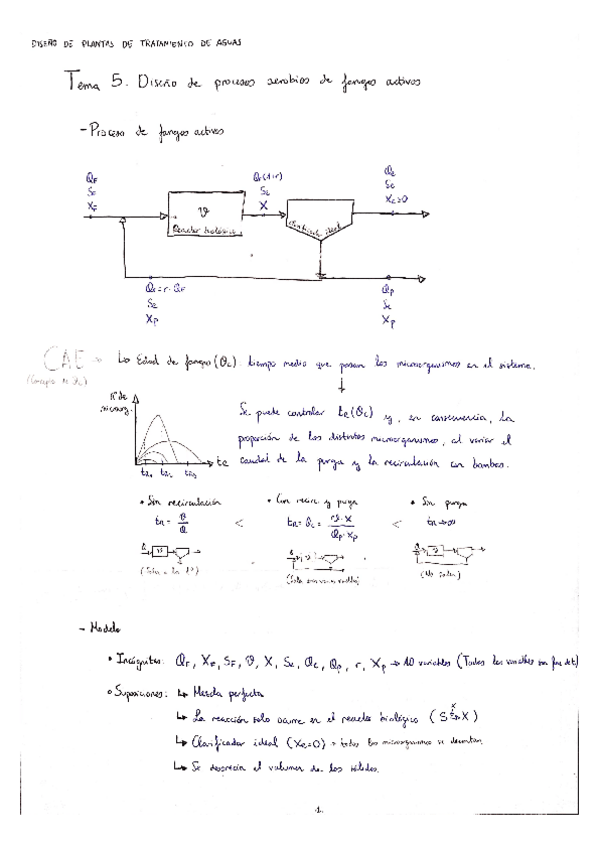 DISEÑO DE PLANTAS DE TRATAMIENTO DE AGUAS
Tema 5. Diseño de procesos aerobios de fangos activos
- Proceso de fangos activos
Q_F
S_F
X_F
ϑ
Reactor biológico
Q_F(1+r)
S_e
X
Clarificador ideal
Q_e
S_e
X_e=0
Q_r=r·Q_F
S_e
X_P
Q_P
S_e
X_P
CAE → La Edad de fangos (θ_c): tiempo medio que pasan los microorganismos en el sistema.
(Concepto de θ_c)
↓
Nº de microorg.
t_R1 t_R2 t_R3
Se puede controlar t_R(θ_c) y, en consecuencia, la
proporción de los distintos microorganismos, al variar el
caudal de la purga y la recirculación con bombas.
• Sin recirculación • Con recirc. y purga • Sin purga
t_R = ϑ/Q < t_R = θ_c = ϑ·X/Q_P·X_P < t_R→∞
- Modelo
• Incógnitas: Q_F, X_F, S_F, ϑ, X, S_e, θ_c, Q_P, r, X_P → 10 variables
• Suposiciones: ↳ Mezcla perfecta
↳ La reacción solo ocurre en el reactor biológico
↳ Clarificador ideal (X_e=0) → todos los microorganismos se decantan
↳ Se desprecia el volumen de los sólidos.
1.